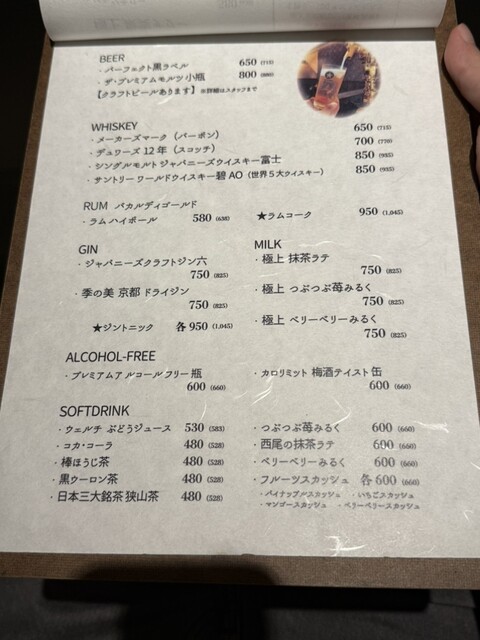 BEER
・パーフェクト黒ラベル 650 (715)
・ザ・プレミアムモルツ 小瓶 800 (880)
【クラフトビールあります】 ※詳細はスタッフまで
WHISKEY
・メーカーズマーク（バーボン） 650 (715)
・デュワーズ 12 年（スコッチ） 700 (770)
・シングルモルトジャパニーズウイスキー富士 850 (935)
・サントリー ワールドウイスキー碧 AO（世界５大ウイスキー） 850 (935)
RUM バカルディゴールド
・ラム ハイボール 580 (638) ★ラムコーク 950 (1,045)
GIN
・ジャパニーズクラフトジン六
750 (825)
・季の美 京都 ドライジン
750 (825)
★ジントニック 各 950 (1,045)
MILK
・極上 抹茶ラテ
750 (825)
・極上 つぶつぶ苺みるく
750 (825)
・極上 ベリーベリーみるく
750 (825)
ALCOHOL-FREE
・プレミアムアルコールフリー 瓶
600 (660)
・カロリミット 梅酒テイスト 缶
600 (660)
SOFTDRINK
・ウェルチ ぶどうジュース 530 (583)
・コカ・コーラ 480 (528)
・棒ほうじ茶 480 (528)
・黒ウーロン茶 480 (528)
・日本三大銘茶 狭山茶 480 (528)
・つぶつぶ苺みるく 600 (660)
・西尾の抹茶ラテ 600 (660)
・ベリーベリーみるく 600 (660)
・フルーツスカッシュ 各 600 (660)
・パイナップルスカッシュ ・いちごスカッシュ
・マンゴースカッシュ ・ベリーベリースカッシュ